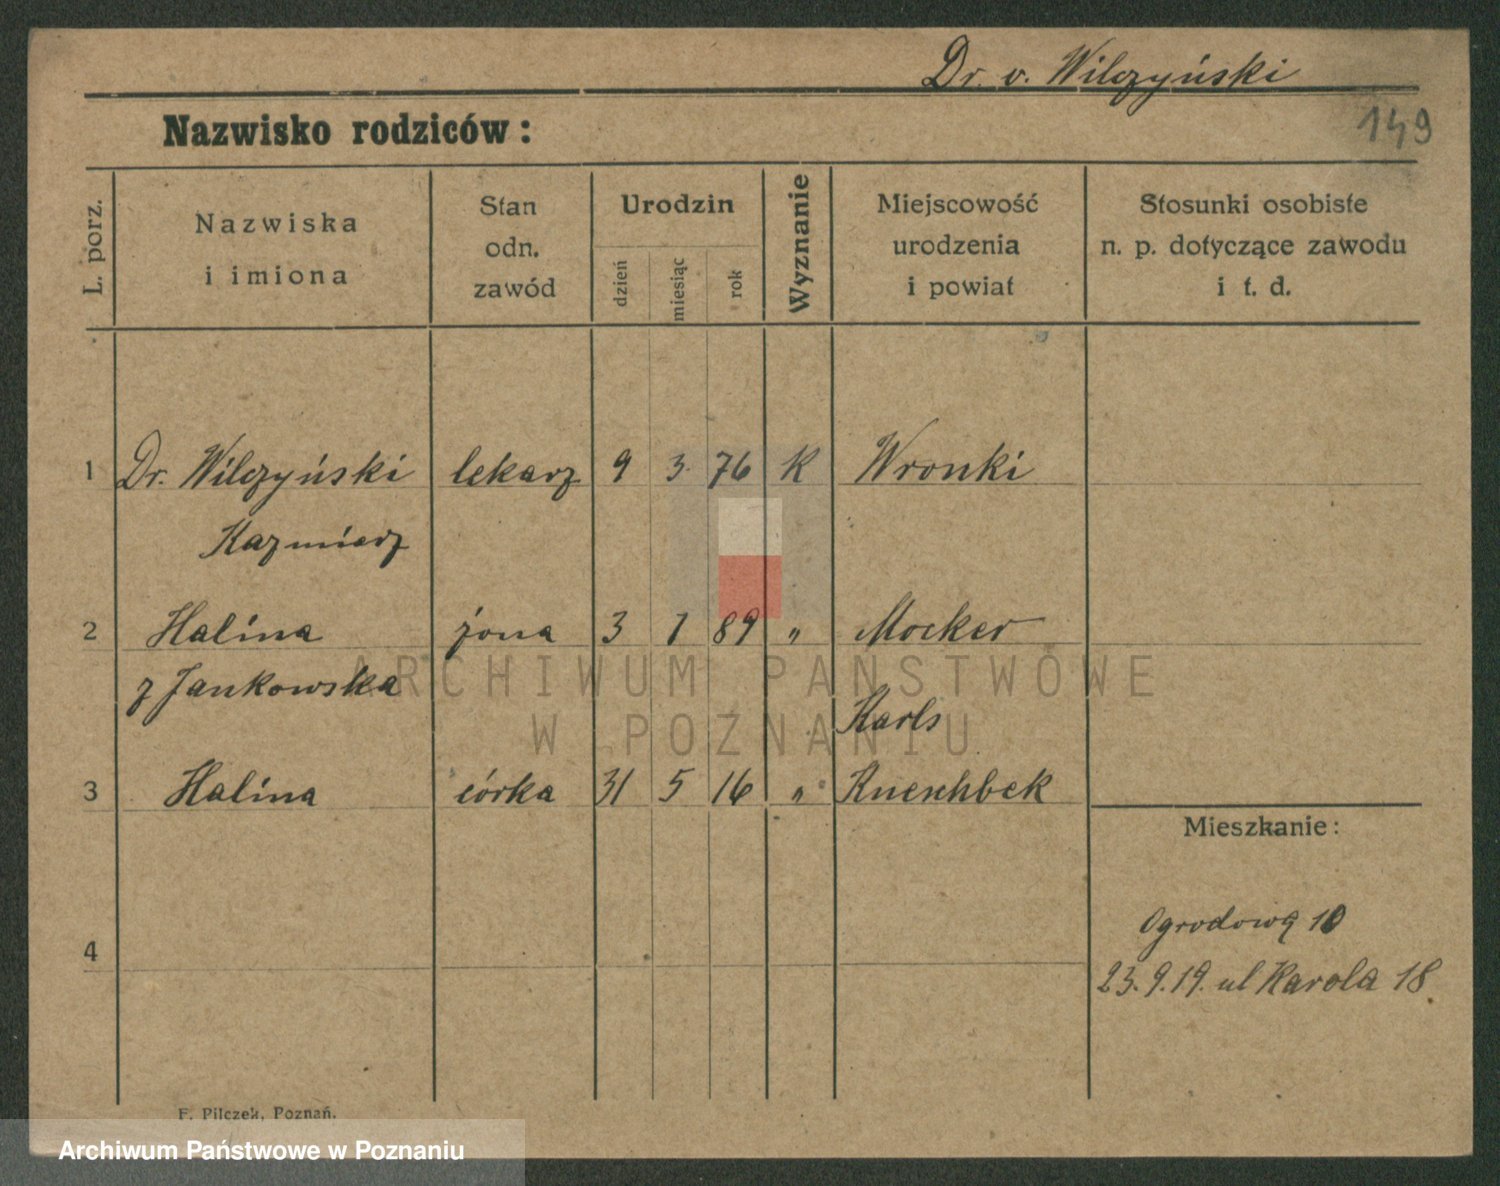 Dr. v. Wilczyński
149
Nazwisko rodziców:
L. porz.
Nazwiska
i imiona
Stan
odn.
zawód
Urodzin
dzień
miesiąc
rok
Wyznanie
Miejscowość
urodzenia
i powiat
Stosunki osobiste
n. p. dotyczące zawodu
i t. d.
1 Dr. Wilczyński lekarz 9 3. 76 K Wronki
Kazmierz
2 Halina żona 3 1 89 " Mocker
z Jankowska
Karls
3 Halina córka 31 5 16 " Rueschbek
Mieszkanie:
4
Ogrodową 10
23.9.19. ul Karola 18.
F. Pilczek, Poznań.
ARCHIWUM PAŃSTWOWE
W POZNANIU
Archiwum Państwowe w Poznaniu